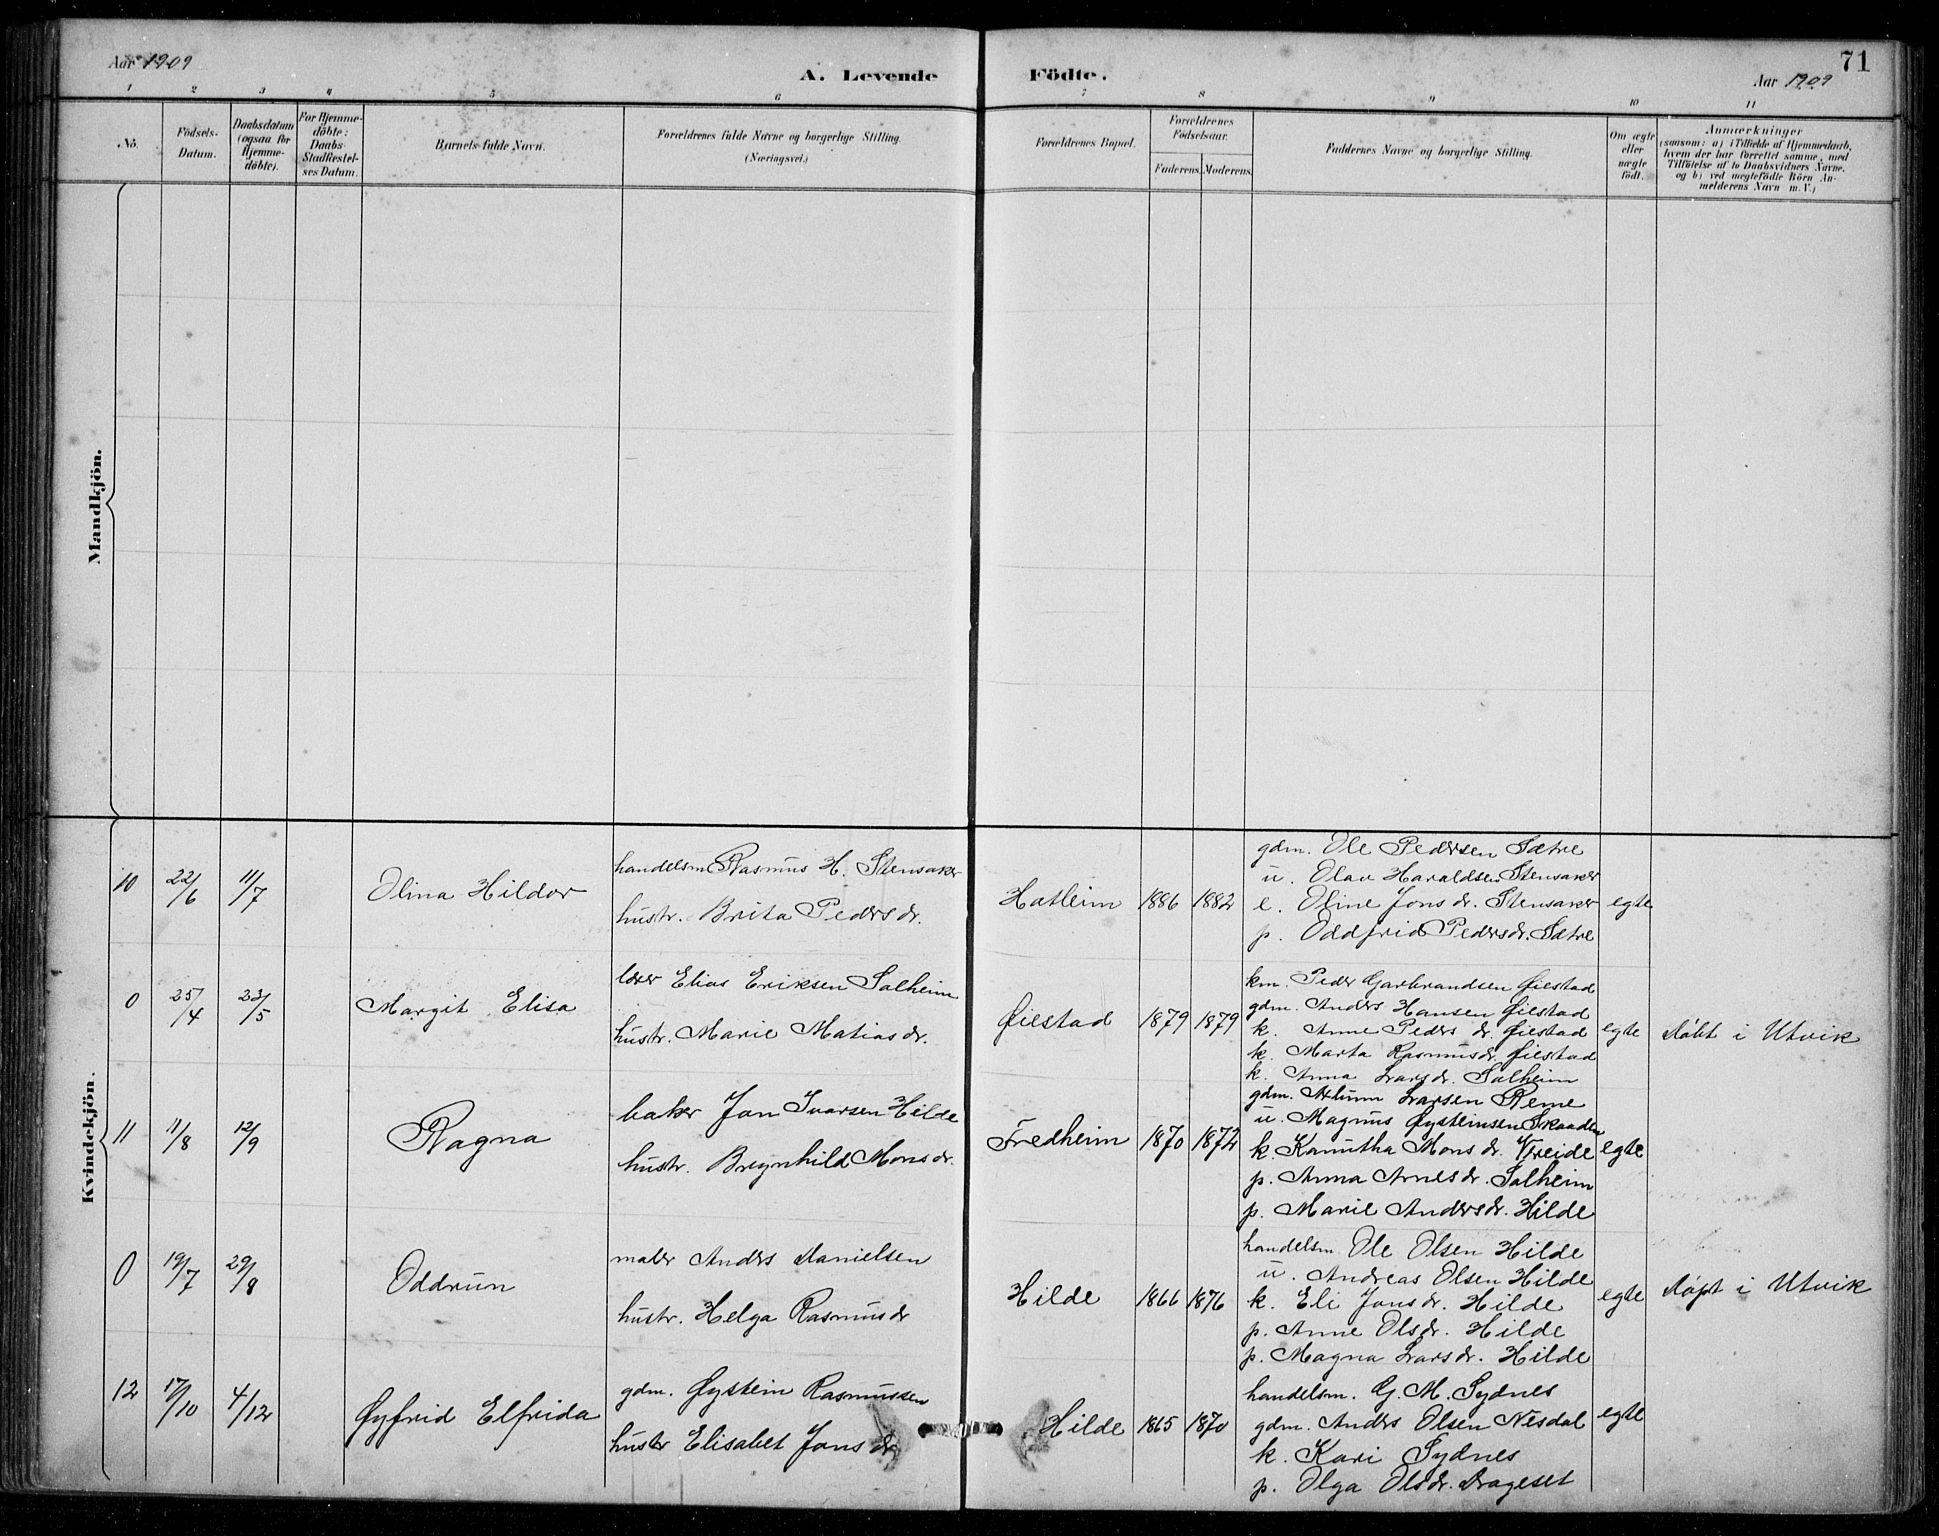 Aar 1909
A. Levende Födte.
71
Aar 1909
1 2 3 4 5 6 7 8 9 10 11
No.
Födsels-Datum.
Daabsdatum (ogsaa for Hjemmedöbte).
For Hjemmedöbte: Daabs-Stadfæstelses Datum.
Barnets fulde Navn.
Forældrenes fulde Navne og borgerlige Stilling.
(Næringsvei.)
Forældrenes Bopæl.
Forældrenes Födselsaar.
Faderens. Moderens.
Faddernes Navne og borgerlige Stilling.
Om ægte eller uægte födt.
Anmærkninger
(saasom: a) i Tilfælde af Hjemmedaab,
hvem der har forrettet samme, med
Tilföielse af to Daabsvidners Navne.
og b) ved uægtefödte Börn An-
melderens Navn m. V.)
Mandkjön.
Kvindekjön.
10 22/6 11/7 Olina Hildor
handelsm Rasmus H. Stensaker
hustr. Brita Pedersdr.
Hatleim 1886 1882
gdm. Ole Pedersen Sætre
u. Olav Haraldsen Stensaker
e. Oline Jonsdr. Stensaker
p. Oddfrid Pedersdr. Sætre
egte
0 25/4 23/5 Margit Elisa
lærer Elias Eriksen Solheim
hustr. Marie Matiasdr.
Øiestad 1879 1879
km. Peder Garbrandsen Øiestad
gdm. Anders Hansen Øiestad
k. Anne Pedersdr. Øiestad
k. Marta Rasmusdr. Øiestad
k. Anna Larsdr. Solheim
egte
Døbt i Utvik
11 11/8 12/9 Ragna
baker Jon Ivarsen Hilde
hustr. Brynhild Monsdr.
Fredheim 1870 1872
gdm. Larsen Reme
u. Magnus Øysteinsen Skaaden
k. Kanutha Monsdr. Vreide
p. Anna Arnesdr. Solheim
p. Marie Andersdr. Hilde
egte
0 19/7 29/8 Oddrun
maler Anders Danielsen
hustr. Helga Rasmusdr
Hilde 1866 1876
handelsm. Ole Olsen Hilde
u. Andreas Olsen Hilde
k. Eli Jonsdr. Hilde
p. Anne Olsdr. Hilde
p. Magna Larsdr. Hilde
egte
Døpt i Utvik
12 17/10 4/12 Øyfrid Elfrida
gdm. Øystein Rasmussen
hustr Elisabet Jonsdr
Hilde 1865 1870
handelsm. G. M. Sydnes
gdm. Anders Olsen Nesdal
k. Kari Sydnes
p. Olga Olsdr. Drageset
egte